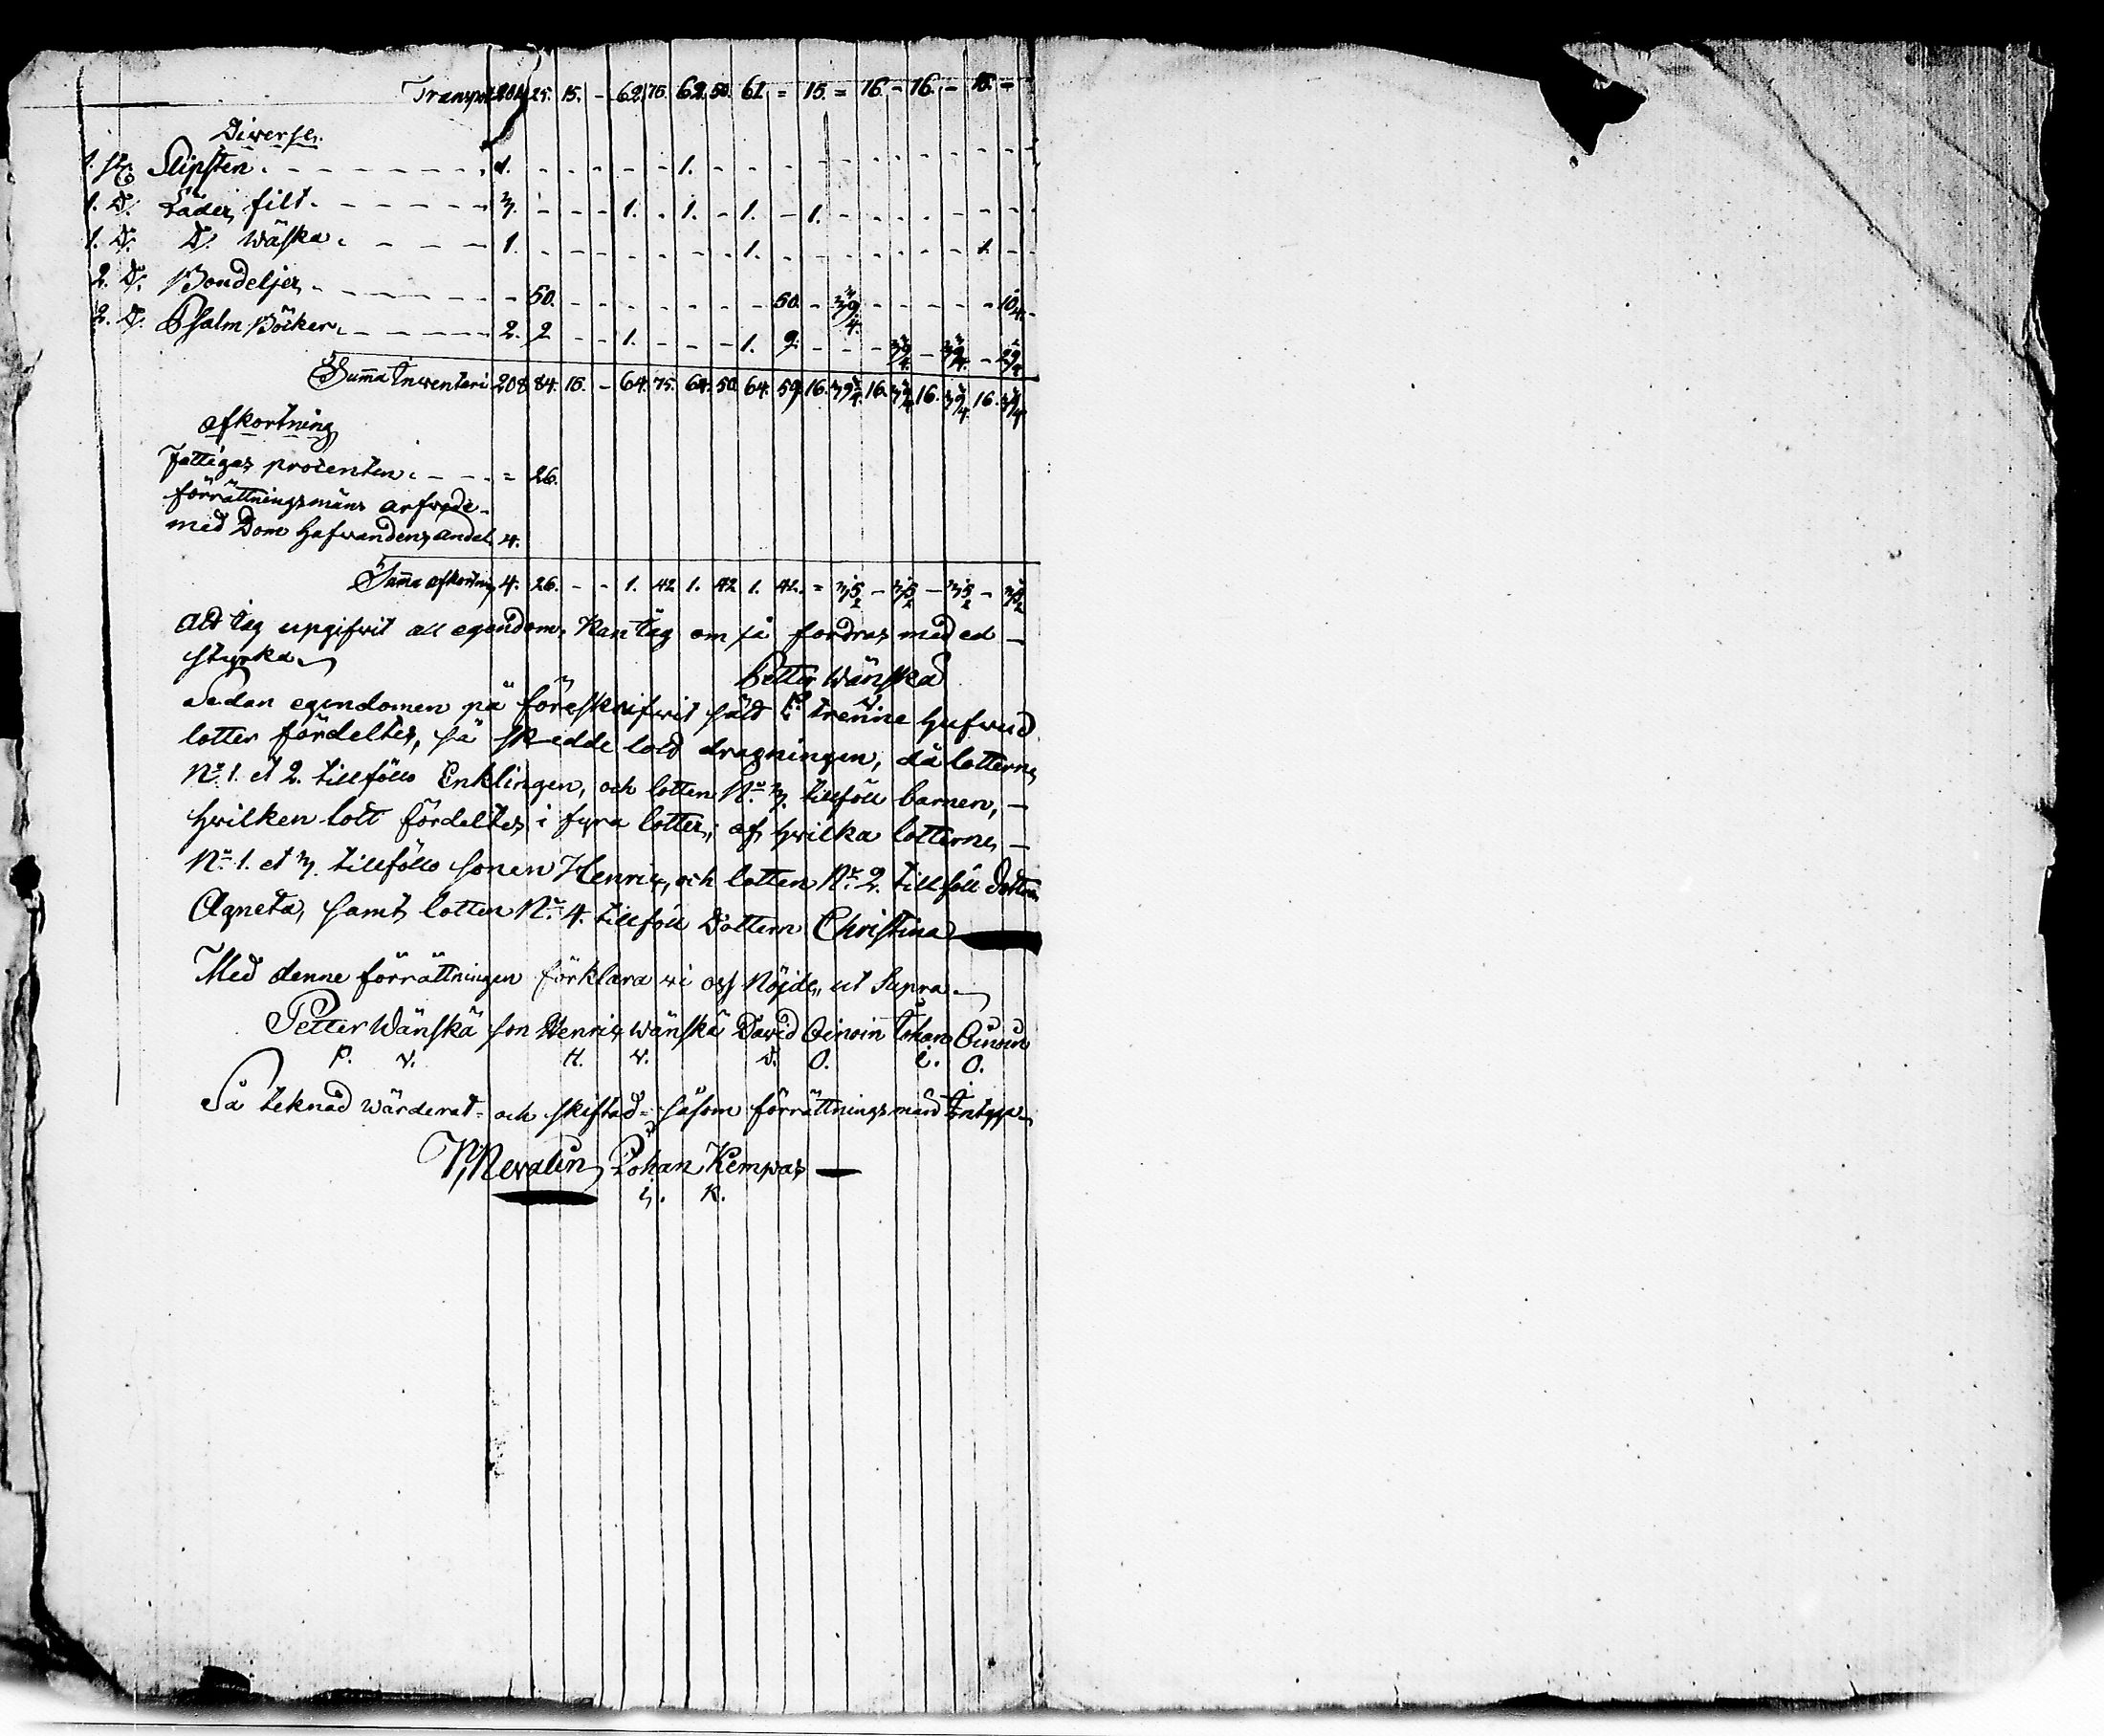 Transport 201. 25. 15. - 62. 75. 62. 50. 61. = 15. = 16. - 16. - 15. =
Diverse.
1. st. Slipsten. 1. 1.
1. D. Läder filt. 3. 1. 1. 1. 1.
1. D. D. Wäska. 1. 1. 1.
2. D. Bondeljer 50. 50.
2. D. Psalm Böcker. 2. 9 1. 1. 9.
Summa Inventari 208. 84. 15. - 64. 75. 64. 50. 64. 59. 16. 16. 16. 16.
afkortning
Fattigas procenten. = 26.
förrättningsmäns arfwode
med Dom hafvandens andel 4.
Summa afkortning 4. 26. - - 1. 42 1. 42 1. 42. =
Att iag upgifvit all egendom. Kan iag om så fordras med ed
styrka
Petter Wänskä
P. V.
Sedan egendomen på föreskrifvit sätt i trenne hufvud
lotter fördeltes, så skedde lott dragningen, då lotterne
No. 1. et 2. tillföllo Enklingen, och lotten No. 3. tillföll barnen,
hvilken lott fördeltes i fyra lotter, af hvilka lotterne
No. 1. et 3. tillföllo sonen Henric, och lotten No. 2. tillföll dottren
Agneta, samt lotten No. 4. tillföll Dottern Christina
Med denne förrättningen förklara vi oss Nöjde, ut Supra
Petter Wänskä son Henric Wänskä David Oinoin Iohan Oinoin
P. V. H. V. D. O. i. O.
Så teknad Wärderat och skiftad såsom förrättningsmänd intyga
Nevalin Iohan Kempas
i. K.